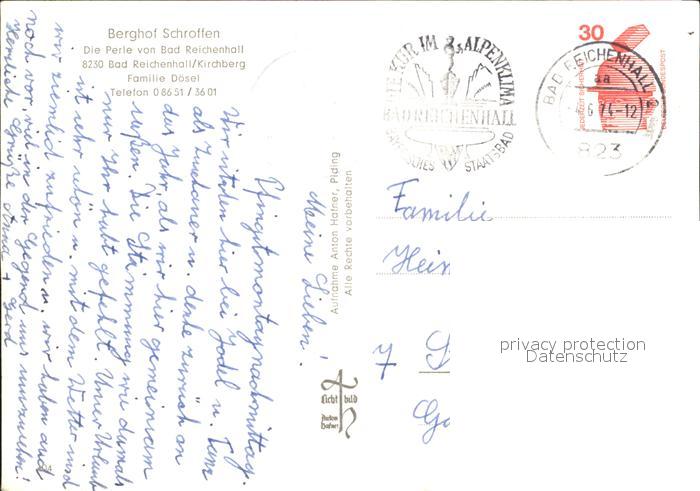 Berghof Schroffen
Die Perle von Bad Reichenhall
8230 Bad Reichenhall/Kirchberg
Familie Dösel
Telefon 0 86 51 / 36 01
Meine Lieben!
Pfingstmontagnachmittag.
Wir sitzen hier bei Jodel u. Tanz
als Zuschauer u. denke zurück an
das Jahr, als wir hier gemeinsam
saßen. Die Stimmung wie damals
nur Ihr habt gefehlt. Unser Urlaub
ist sehr schön u. mit dem Wetter sind
wir ziemlich zufrieden u. wir haben auch
noch vor, viel in der Gegend uns anzusehen!
Herzliche Grüße Anna + Gerd
Aufnahme Anton Hafner, Piding
Alle Rechte vorbehalten
Licht bild
Anton
Hafner
DIE KUR IM ALPENKLIMA
BAD REICHENHALL
BAYERISCHES STAATSBAD
BAD REICHENHALL 2
aa
6 74-12
823
30
JEDERZEIT SICHERHEIT
Familie
Hein
7
privacy protection
Datenschutz